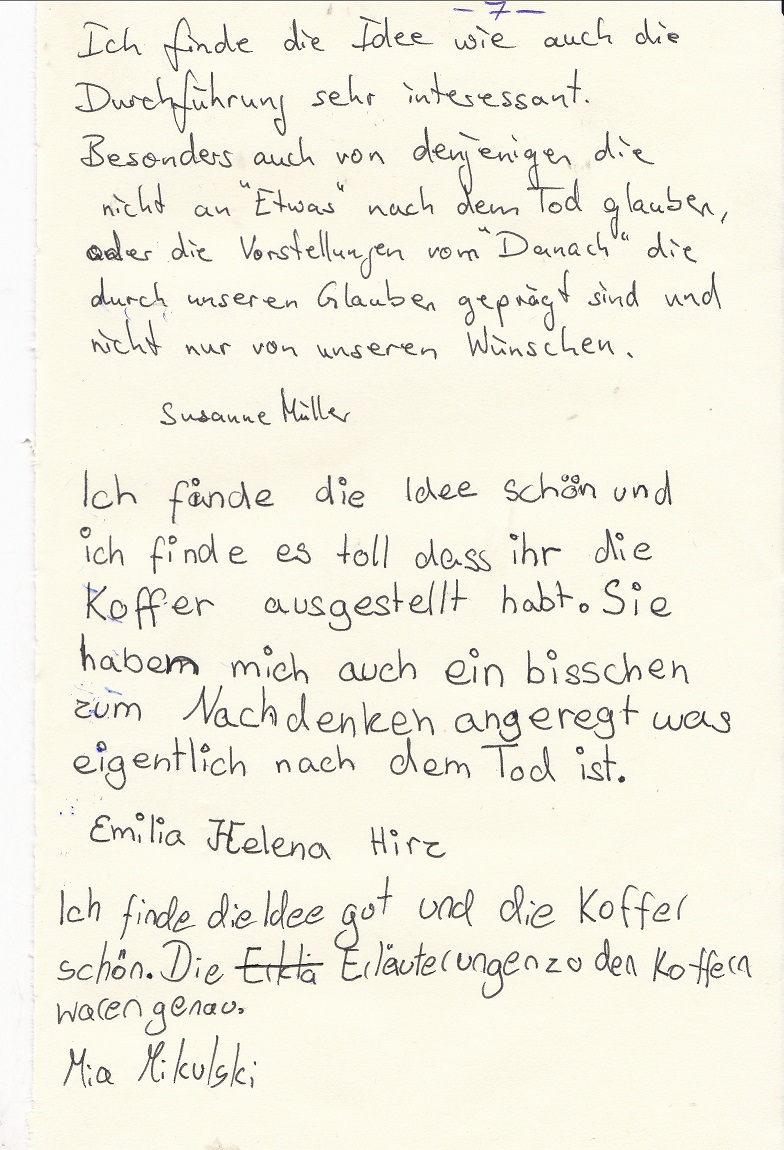 – 7 –
Ich finde die Idee wie auch die
Durchführung sehr interessant.
Besonders auch von denjenigen die
nicht an "Etwas" nach dem Tod glauben,
oder die Vorstellungen vom "Danach" die
durch unseren Glauben geprägt sind und
nicht nur von unseren Wünschen.
Susanne Müller
Ich fände die Idee schön und
ich finde es toll dass ihr die
Koffer ausgestellt habt. Sie
haben mich auch ein bisschen
zum Nachdenken angeregt was
eigentlich nach dem Tod ist.
Emilia Helena Hirz
Ich finde die Idee gut und die Koffer
schön. Die Erklä Erläuterungen zu den Koffern
waren genau.
Mia Mikulski